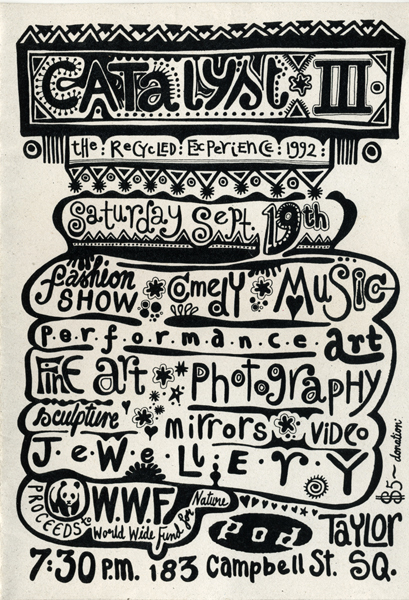 CATalyst III
the : ReCYCLED : ExPerienCe : 1992 :
Saturday Sept. 19th
fashion SHOW Comedy Music
P.e.r.f.o.r.m.a.n.c.e art
FinE art Photography
sculpture mirrors video
J.e.W.e.LL.E.r.Y
$5 ~ donation:
PROCEEDS to W.W.F. World Wide Fund for Nature
pod TAYLOR
7:30 P.m. 183 Campbell St. SQ.